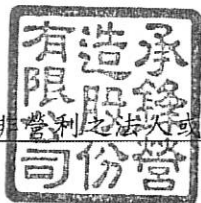 承鋒營
造股份
有限公司
非營利之法人或